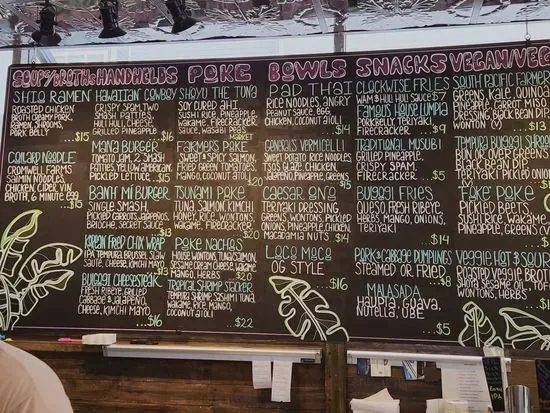 SOUPS/BROTHS
SHIO RAMEN
ROASTED CHICKEN
BROTH, CREAMY PORK,
KEMP, SHROOMS,
PORK BELLY
...$15
COLLARD NOODLE
CROMWELL FARMS
SAIMIN NOODLES,
CHICKEN, CIDER, VIN,
BROTH, 6 MINUTE EGG
...$15
HANDHELDS
HAWAIIAN COWBOY
CRISPY SPAM, TWO
SMASH PATTIES,
HULI HULI, CHEESE,
GRILLED PINEAPPLE
$16
MANA BURGER
TOMATO JAM, 2 SMASH
PATTIES, YELLOW AMERICAN,
PICKLED LETTUCE
BANH MI BURGER
SINGLE SMASH,
PICKLED CARROTS, JALAPENOS,
BRIOCHE, SECRET SAUCE
$13
KOREAN FRED CHIX WRAP
IPA TEMPURA BREAST, SLAW,
SEC. CHEESE, KIMCHI MAYO
BULGOGI CHEESESTEAK
FRESH RIBEYE, GRILLED
CABBAGE & JALAPENO,
CHEESE, KIMCHI MAYO,
...$16
POKE
SHOYU THE TUNA
SOY CURED AHI,
SUSHI RICE, PINEAPPLE,
WAKAME, FIRECRACKER
SAUCE, WASABI
MARKET
FARMERS POKE
SWEET & SPICY SALMON,
FRIED GREEN TOMATOES,
MANGO, COCONUT AIOLI
$20
TSUNAMI POKE
TUNA, SALMON, KIMCHI,
HONEY, RICE, WONTONS,
WAKAME, FIRECRACKER
$20
POKE NACHOS
HOUSE WONTONS, TUNA/SALMON
SESAME CREAM CHEESE, WAKAME
MANGO, HEAT
$20
TROPICAL SHRIMP STACKER
TEMPURA SHRIMP, SASHIMI TUNA,
WAKAME, RICE, MANGO,
COCONUT AIOLI
...$22
BOWLS
PAD THAI
RICE NOODLES, ANGRY
PEANUT SAUCE, EGG,
CHICKEN, COCONUT AIOLI
$14
GENERALS VERMICELLI
SWEET POTATO RICE NOODLES,
TSOS GLAZE, CHICKEN,
JAPANESE GREENS, PINEAPPLE
$15
CAESAR ONO
TERIYAKI PRESSING,
GREENS, WONTONS, PICKLED
ONIONS, PINEAPPLE, CHICKEN,
MACADAMIA NUTS
$14
LOCO MOCO
OG STYLE
...$16
SNACKS
CLOCKWISE FRIES
WAM & HULI HULI SAUCES $7
FAMOUS HOUSE LUMPIA
BULGOGI, TERIYAKI,
FIRECRACKER
$9
TRADITIONAL MUSUBI
GRILLED PINEAPPLE,
CRISPY SPAM,
FIRECRACKER
...$5
BULGOGI FRIES
QUESO, FRESH RIBEYE,
HERBS, MANGO, ONIONS,
TERIYAKI
$14
PORK & CABBAGE DUMPLINGS
STEAMED OR FRIED
...$8
MALASADA
HAUPIA, GUAVA,
NUTELLA, UBE
...$5
VEGAN/VEG
SOUTH PACIFIC FARMERS
GREENS, KALE, QUINOA,
PINEAPPLE, CARROT MISO
DRESSING, BLACK BEAN DIP,
WONTONS (V)
...$13
TEMPURA BUGGI SHROOM
BUN OR OVER GREENS
BLACK BEAN DIP,
SWEET ONIONS,
PICKLED GREENS
FAKE POKE
PICKLED BEETS,
SUSHI RICE, WAKAME,
PINEAPPLE, WONTONS,
GREENS (V)
VEGGIE HOT & SOUR
ROASTED VEGGIE BROTH
SHOYU, SESAME OIL, TOFU
WONTONS, HERBS
...$1